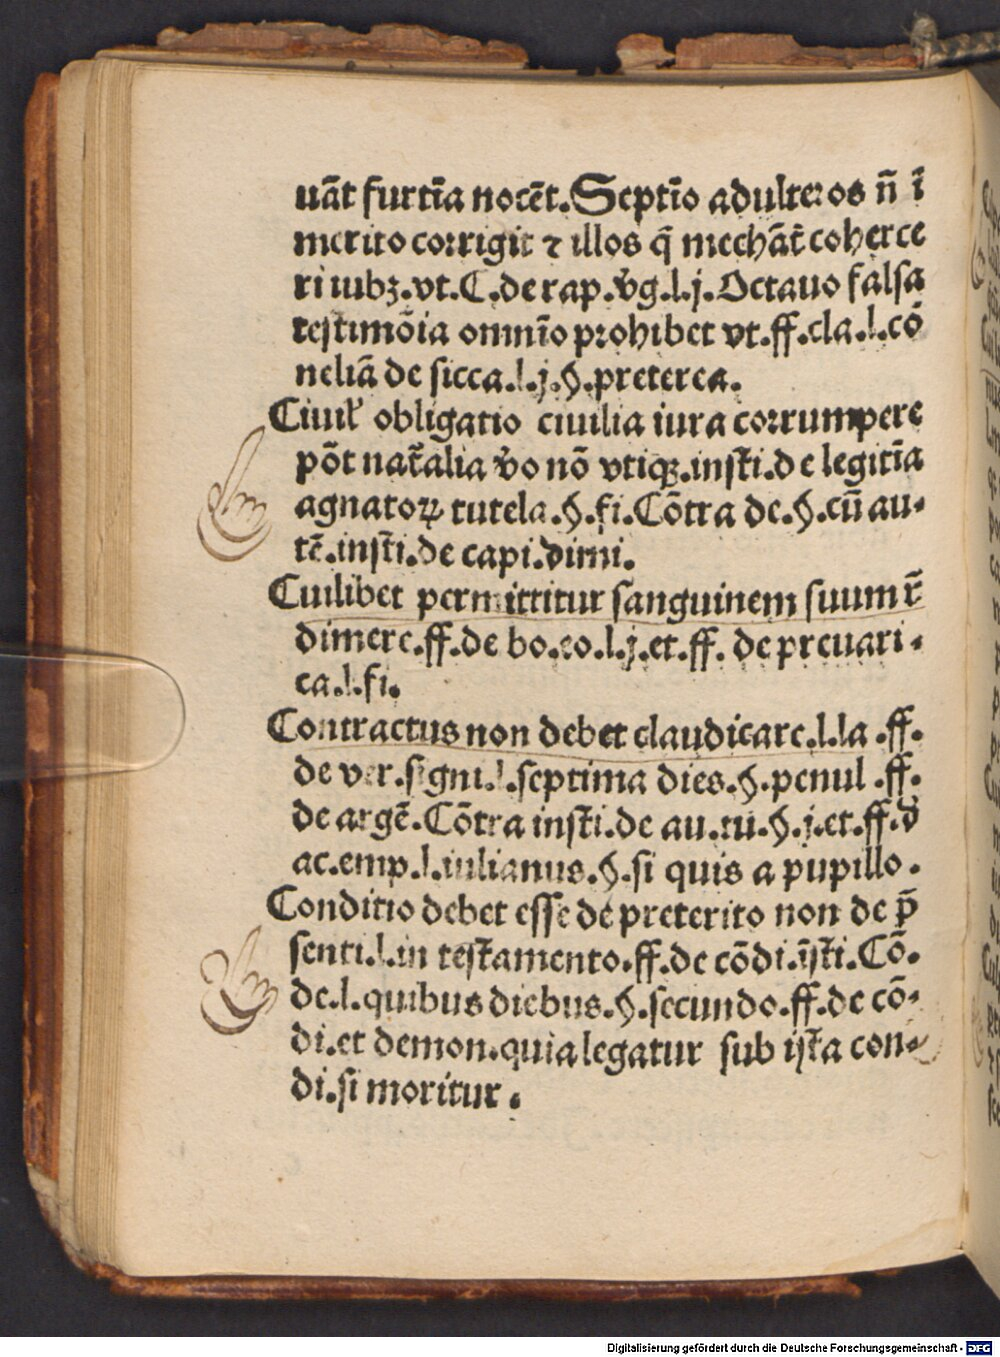 uāt furtīa nocēt. Septīo adulteros n̄ ī
merito corrigit ⁊ illos q̄ mechāt̄ coherce
ri iubꝫ. vt. C. de rap. v̄g. l. j. Octauo falsa
testimōia omnīo prohibet vt. ff. cla. l. cō
neliā de sicca. l. j. §. preterea.
Ciuil̓ obligatio ciuilia iura corrumpere
pōt nat̄alia v̄o nō vtiqꝫ. insti. de legitīa
agnatoꝝ tutela. §. fi. Cōtra de. §. cū au⸗
tē. insti. de capi. dimi.
Cuilibet permittitur sanguinem suum r̄
dimere. ff. de bo. eo. l. j. et. ff. de preuari⸗
ca. l. fi.
Contractus non debet claudicare. l. la . ff.
de ver. signi. l. septima dies. §. penul . ff.
de argē. Cōtra insti. de au. tu. §. j. et. ff. d̄
ac. emp. l. iulianus. §. si quis a pupillo .
Conditio debet esse de preterito non de p̄
senti. l. in testamento. ff. de cōdi. īsti. Cō.
de. l. quibus diebus. §. secundo. ff. de cō⸗
di. et demon. quia legatur sub ista con⸗
di. si moritur .
Digitalisierung gefördert durch die Deutsche Forschungsgemeinschaft - DFG